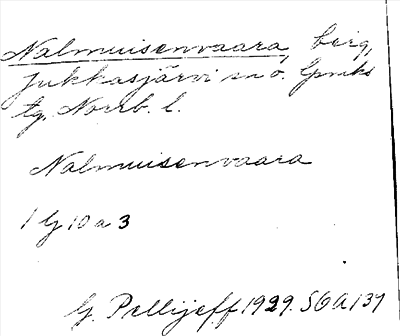 Nalmuisenvaara, berg,
Jukkasjärvi sn o. lpmks
tg. Norrb. l.
Nalmuisenvaara
1 lj 10 a 3
G. Pellijeff 1929. SOA 137